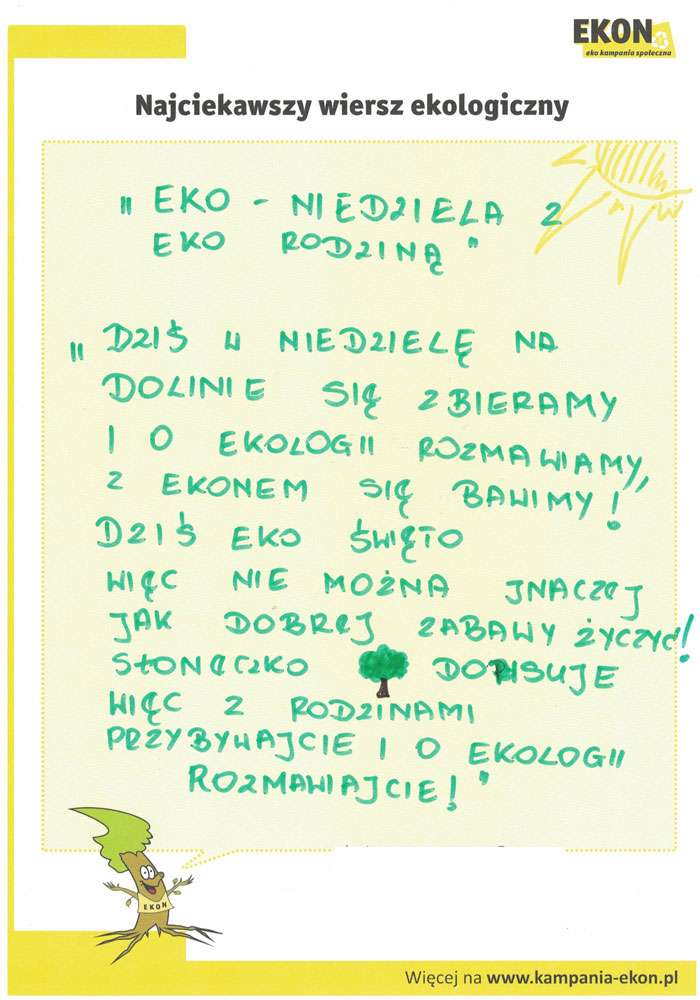 EKON
eko kampania społeczna
Najciekawszy wiersz ekologiczny
„ EKO - NIEDZIELA Z
EKO RODZINĄ "
„ DZIŚ W NIEDZIELĘ NA
DOLINIE SIĘ ZBIERAMY
I O EKOLOGII ROZMAWIAMY,
Z EKONEM SIĘ BAWIMY!
DZIŚ EKO ŚWIĘTO
WIĘC NIE MOŻNA JNACZEJ
JAK DOBREJ ZABAWY ŻYCZYĆ!
SŁONECZKO DOPISUJE
WIĘC Z RODZINAMI
PRZYBYWAJCIE I O EKOLOGII
ROZMAWIAJCIE! "
EKON
Więcej na www.kampania-ekon.pl